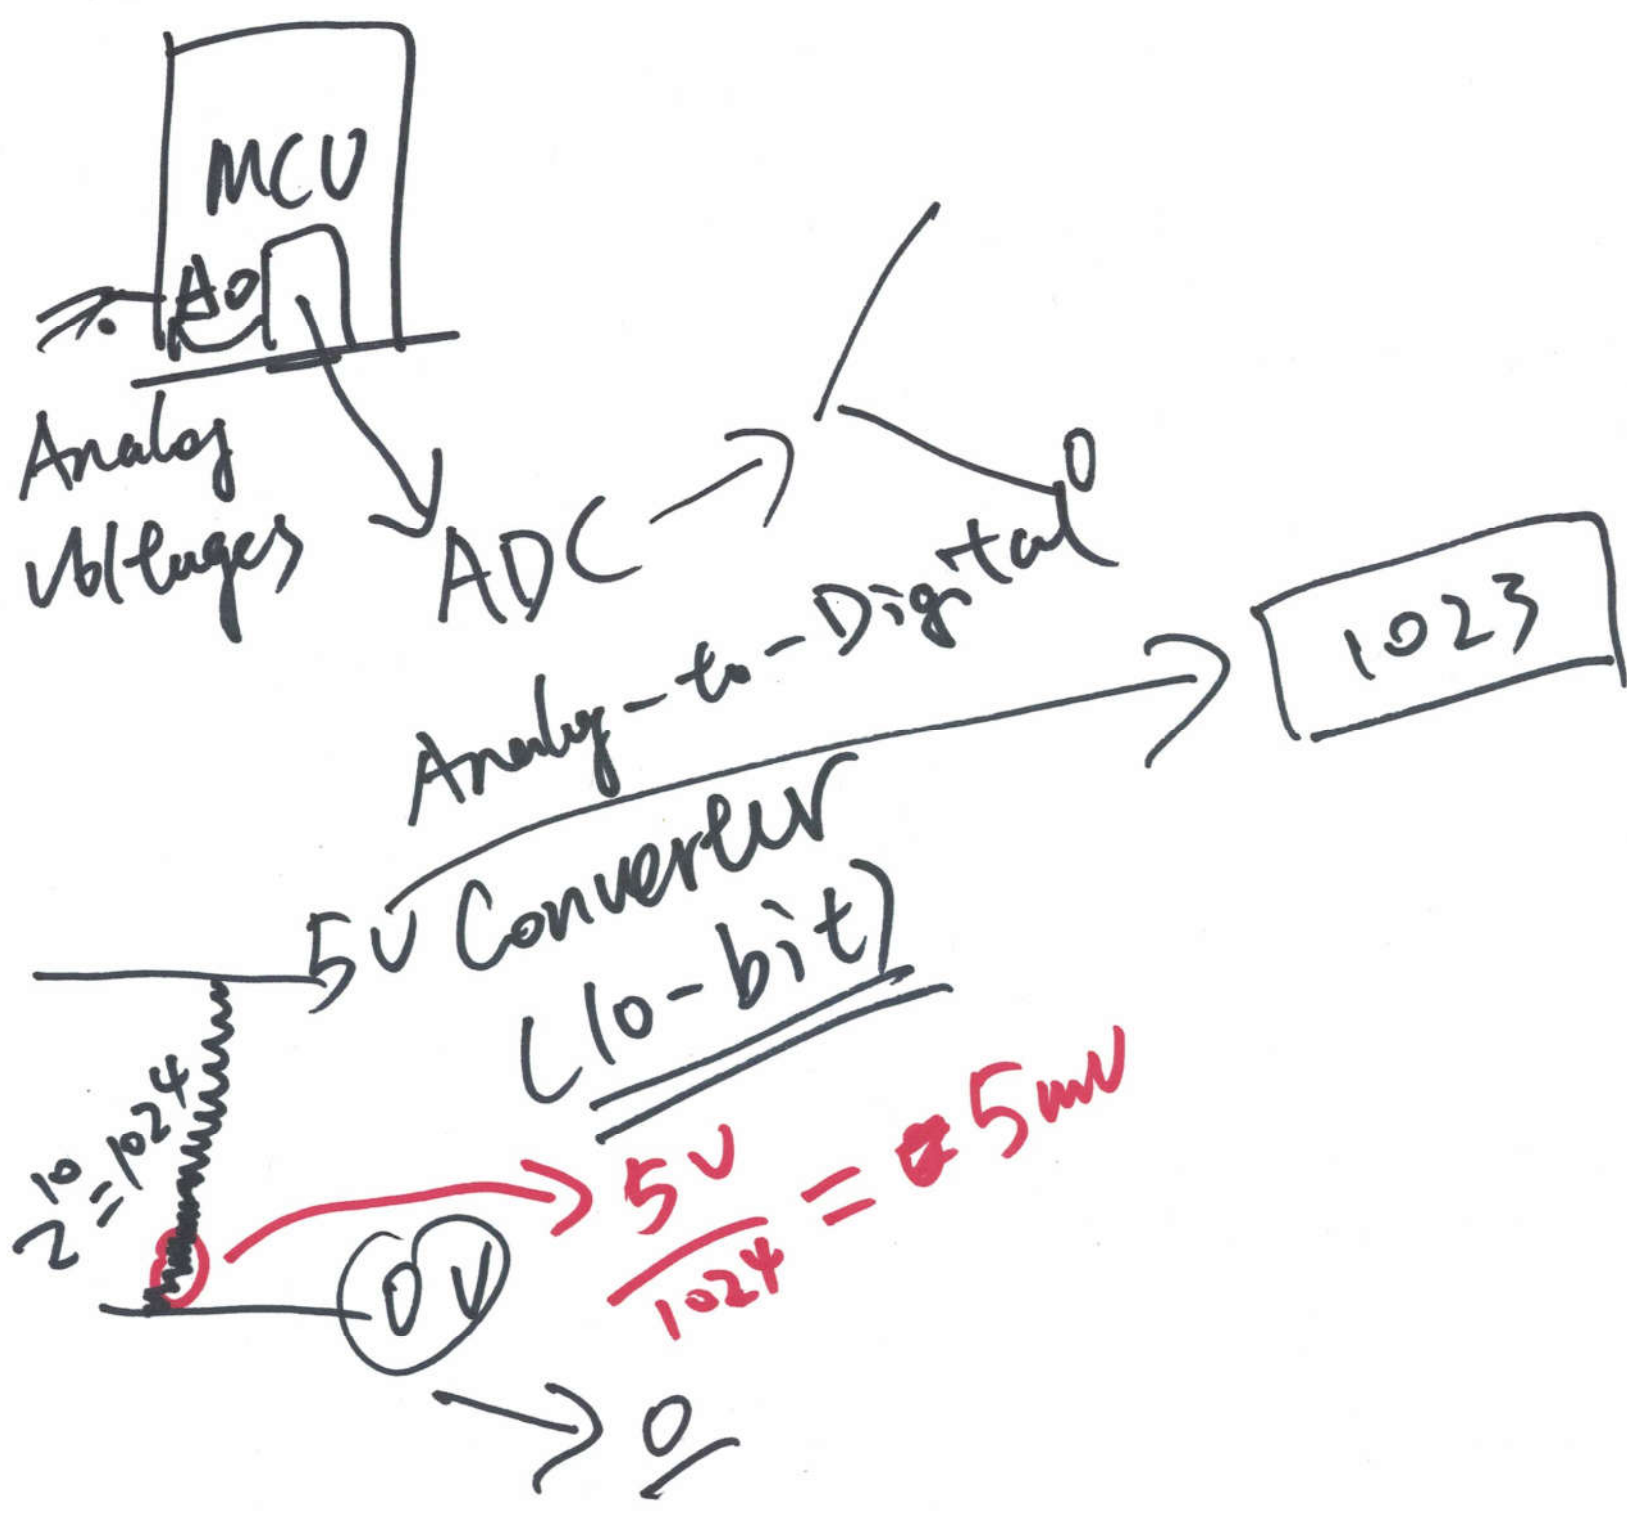 MCU
A0
Analog
Voltages
ADC
0
Analog-to-Digital
Converter
(10-bit)
1023
5V
2^10=1024
5V
1024
= 5mV
0V
0